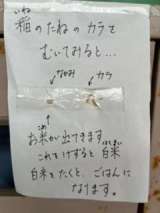 いね
稲のたねのカラを
むいてみると…
なかみ
カラ
こめ
お米が出てきます。
これをけずると白米
はくまい
白米をたくと、ごはんに
なります。